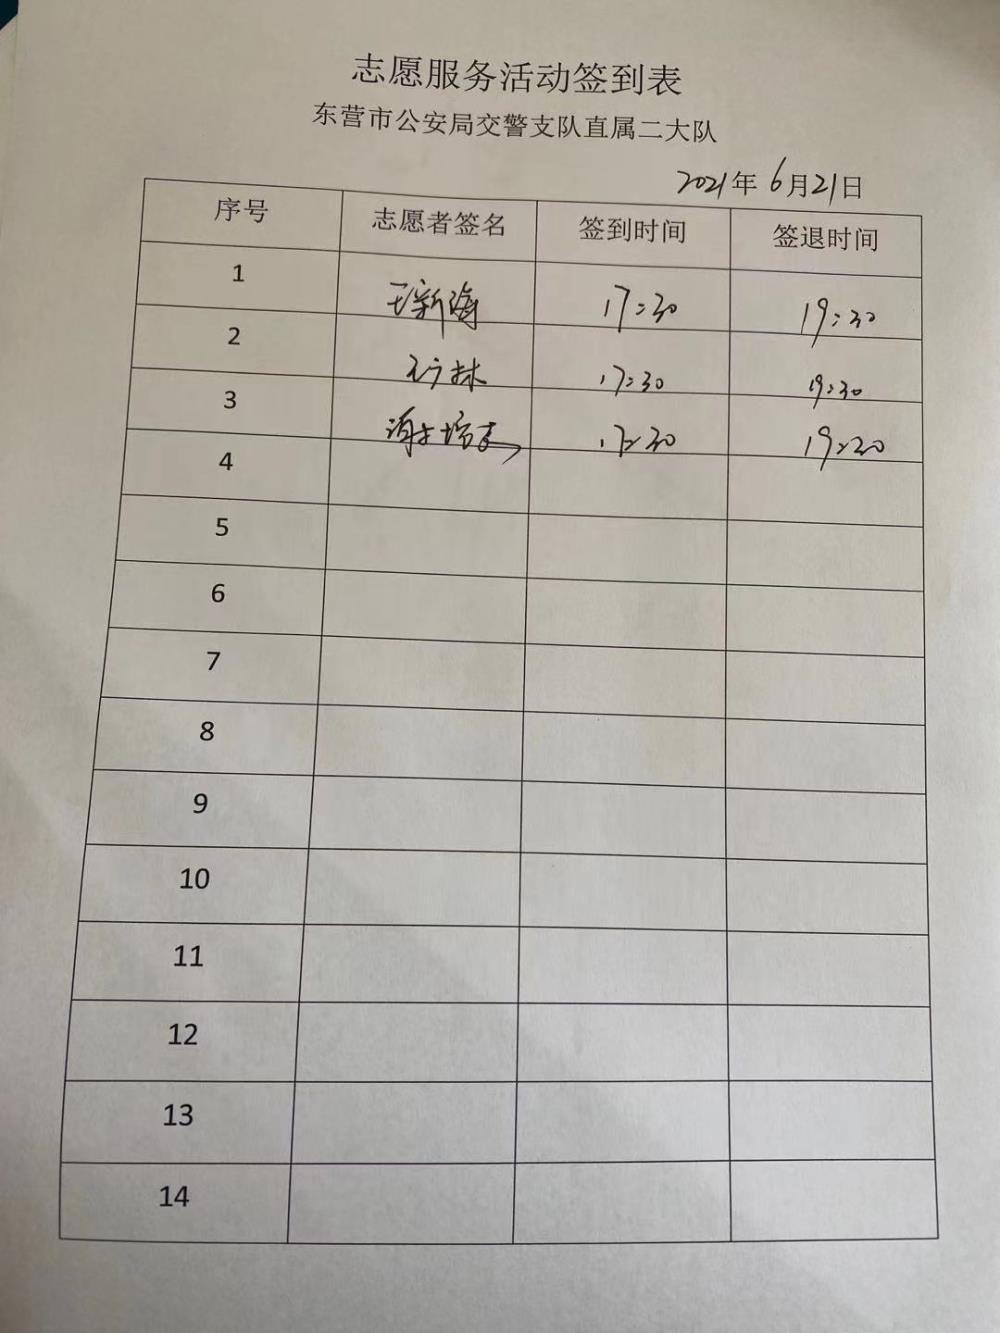 志愿服务活动签到表
东营市公安局交警支队直属二大队
2021年6月21日
序号 志愿者签名 签到时间 签退时间
1 王新海 17:30 19:30
2 17:30 19:30
3 17:30 19:30
4
5
6
7
8
9
10
11
12
13
14